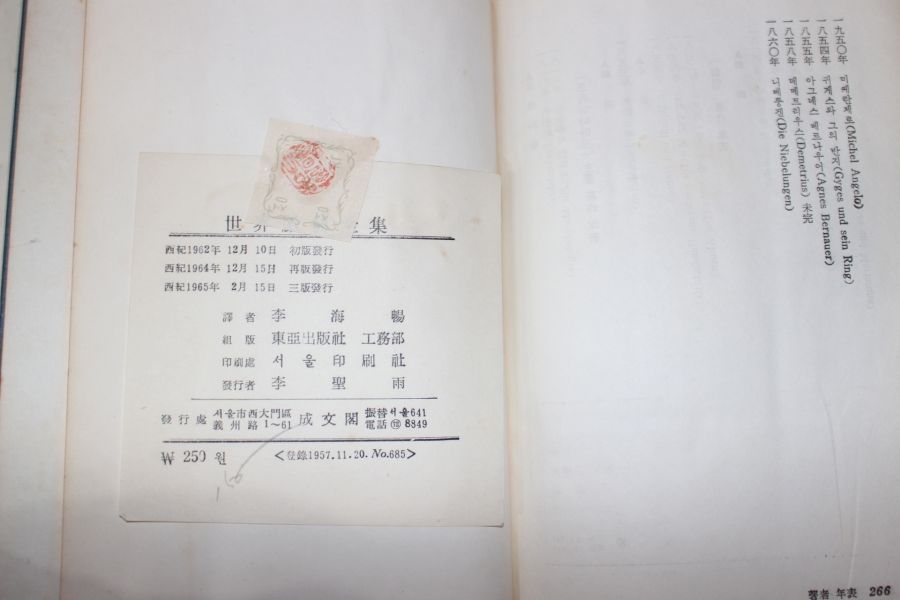 世界 全集
西紀1962年 12月 10日 初版發行
西紀1964年 12月 15日 再版發行
西紀1965年 2月 15日 三版發行
譯者 李海暢
組版 東亞出版社 工務部
印刷處 서울印刷社
發行者 李聖雨
發行處 서울市西大門區 義州路 1~61 成文閣 振替서울641 電話 8849
₩ 250 원 <登錄1957.11.20. No.685>
一九五〇年 미케란제로(Michel Angelo)
一八五四年 귀게스와 그의 반지(Gyges und sein Ring)
一八五五年 아그네스 베르나우아(Agnes Bernauer)
一八五八年 데메트리우스(Demetrius) 未完
一八六〇年 니베룽겐(Die Niebelungen)
著者 年表 266